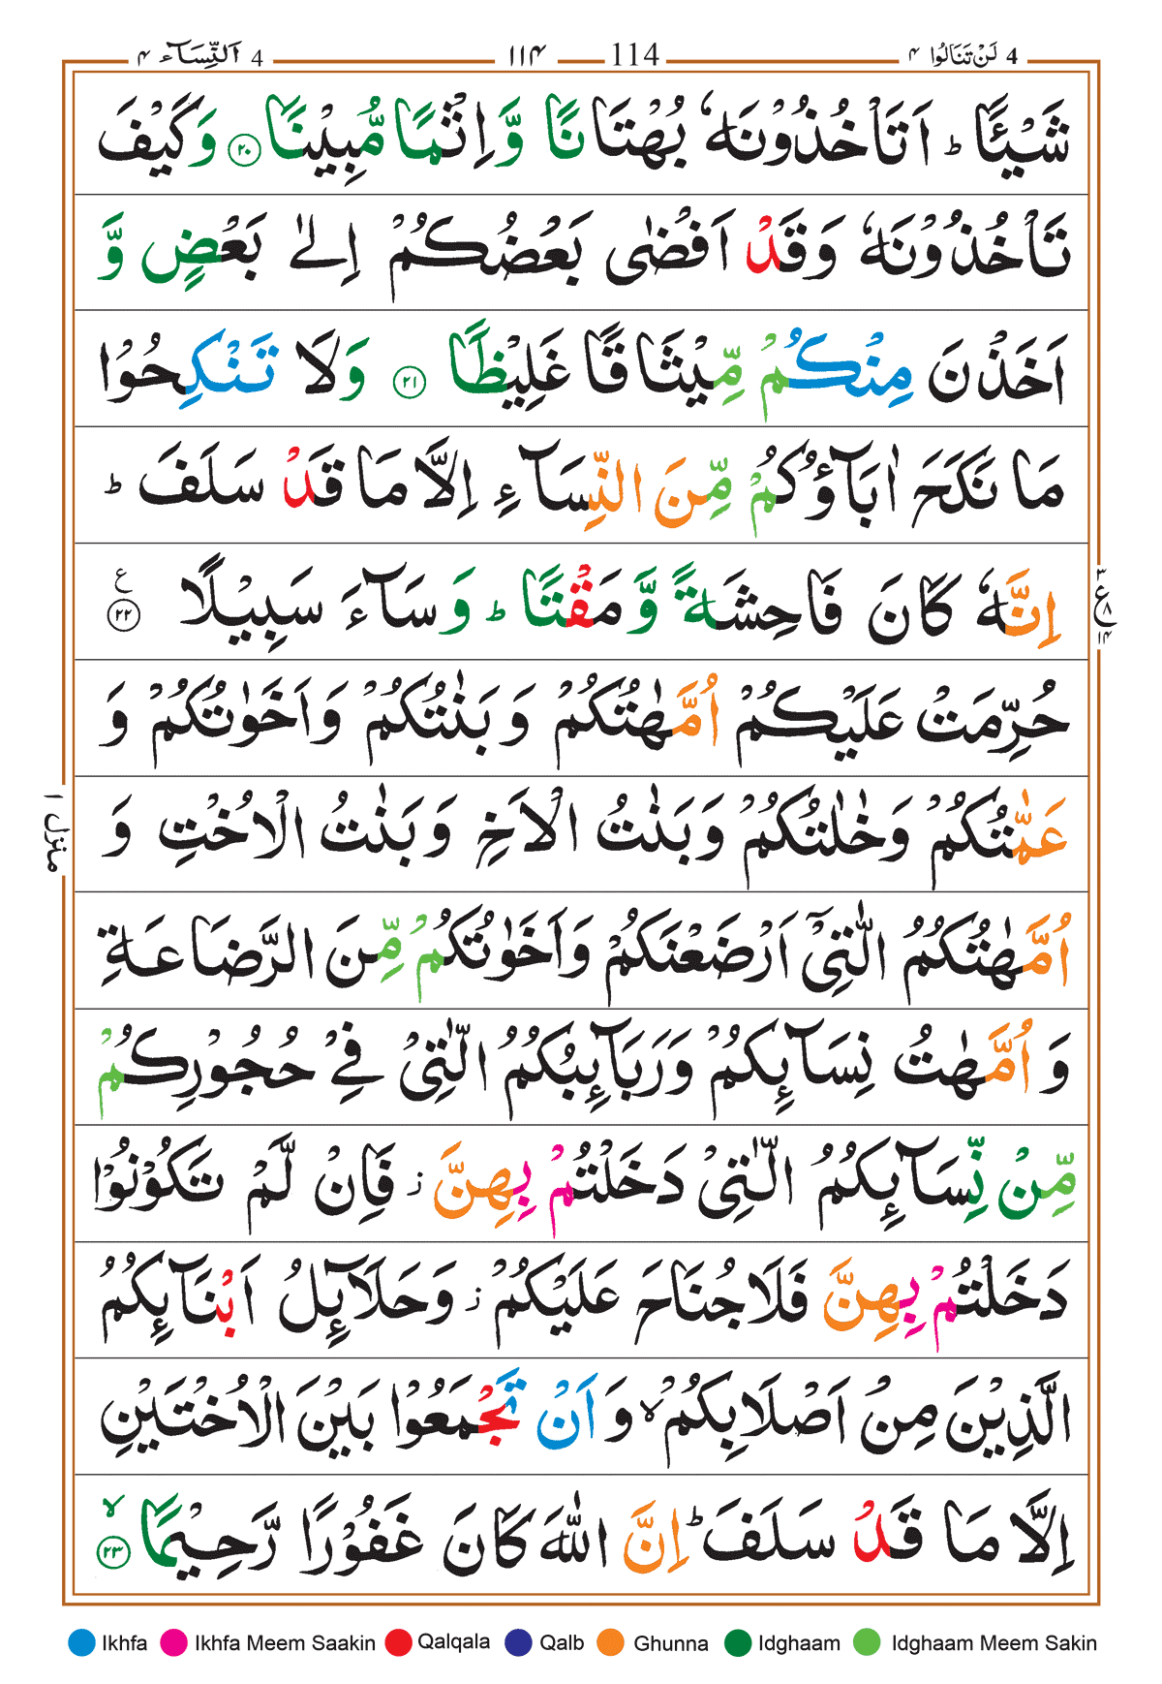 4 لَنْ تَنَالُوا ۴ 114 ۱۱۴ 4 اَلنِّسَآء ۴
شَيْـًٔا ؕ اَتَاْخُذُوْنَهٗ بُهْتَانًا وَّ اِثْمًا مُّبِيْنًا ۲۰ وَ كَيْفَ
تَاْخُذُوْنَهٗ وَ قَدْ اَفْضٰى بَعْضُكُمْ اِلٰى بَعْضٍ وَّ
اَخَذْنَ مِنْكُمْ مِّيْثَاقًا غَلِيْظًا ۲۱ وَ لَا تَنْكِحُوْا
مَا نَكَحَ اٰبَآؤُكُمْ مِّنَ النِّسَآءِ اِلَّا مَا قَدْ سَلَفَ ؕ
اِنَّهٗ كَانَ فَاحِشَةً وَّ مَقْتًا ؕ وَ سَآءَ سَبِيْلًا ۲۲ ع
۳ ع ۸ ۱۴
حُرِّمَتْ عَلَيْكُمْ اُمَّهٰتُكُمْ وَ بَنٰتُكُمْ وَ اَخَوٰتُكُمْ وَ
عَمّٰتُكُمْ وَ خٰلٰتُكُمْ وَ بَنٰتُ الْاَخِ وَ بَنٰتُ الْاُخْتِ وَ
منزل ۱
اُمَّهٰتُكُمُ الّٰتِيْۤ اَرْضَعْنَكُمْ وَ اَخَوٰتُكُمْ مِّنَ الرَّضَاعَةِ
وَ اُمَّهٰتُ نِسَآئِكُمْ وَ رَبَآئِبُكُمُ الّٰتِيْ فِيْ حُجُوْرِكُمْ
مِّنْ نِّسَآئِكُمُ الّٰتِيْ دَخَلْتُمْ بِهِنَّ ز فَاِنْ لَّمْ تَكُوْنُوْا
دَخَلْتُمْ بِهِنَّ فَلَا جُنَاحَ عَلَيْكُمْ ز وَ حَلَآئِلُ اَبْنَآئِكُمُ
الَّذِيْنَ مِنْ اَصْلَابِكُمْ ۙ وَ اَنْ تَجْمَعُوْا بَيْنَ الْاُخْتَيْنِ
اِلَّا مَا قَدْ سَلَفَ ؕ اِنَّ اللّٰهَ كَانَ غَفُوْرًا رَّحِيْمًا ۙ ۲۳
Ikhfa Ikhfa Meem Saakin Qalqala Qalb Ghunna Idghaam Idghaam Meem Sakin